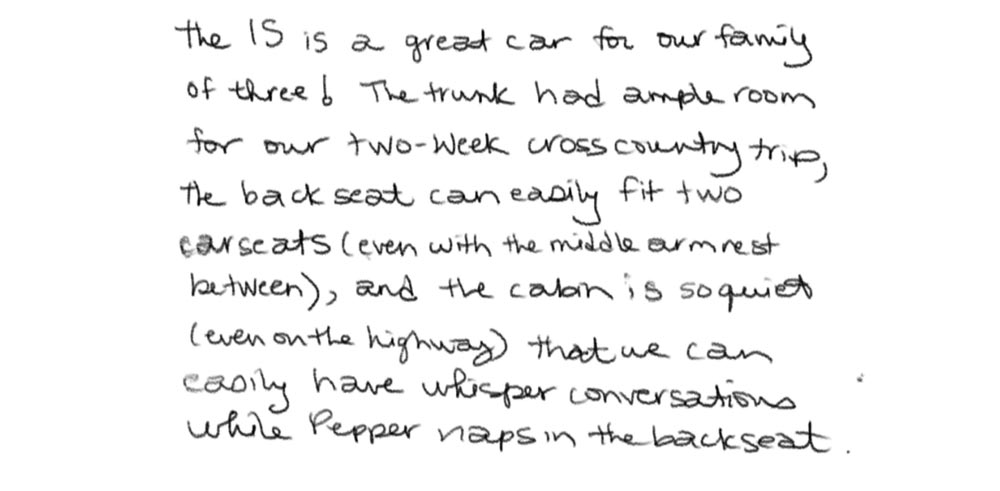 the IS is a great car for our family
of three! The trunk had ample room
for our two-week cross country trip,
the back seat can easily fit two
carseats (even with the middle armrest
between), and the cabin is so quiet
(even on the highway) that we can
easily have whisper conversations
while Pepper naps in the backseat.